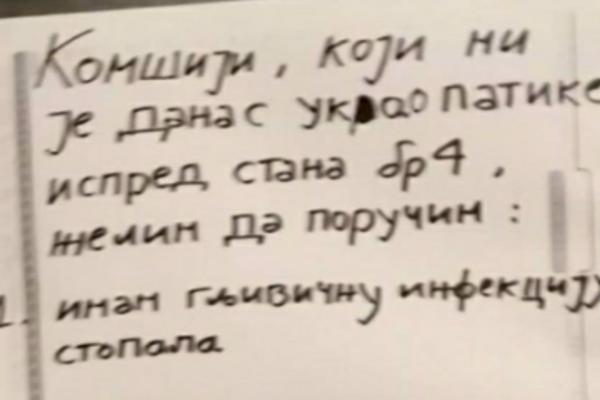 Комшији, који ми
је данас украо патике
испред стана бр4,
желим да поручим:
1. имам гљивичну инфекцију
стопала